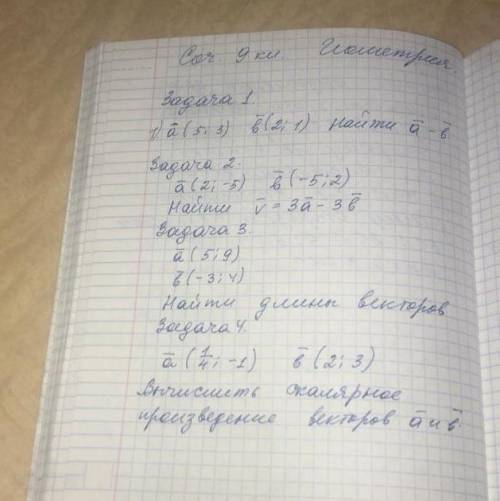 Соч 9 кл. Геометрия.
Задача 1
1) a̅ (5; 3) b̅ (2; 1) Найти a̅ - b̅
Задача 2.
a̅ (2; -5) b̅ (-5; 2)
Найти v̅ = 3a̅ - 3b̅
Задача 3.
a̅ (5; 9)
b̅ (-3; 4)
Найти длины векторов
Задача 4.
a̅ (1/4; -1) b̅ (2; 3)
Вычислить скалярное
произведение векторов a̅ и b̅